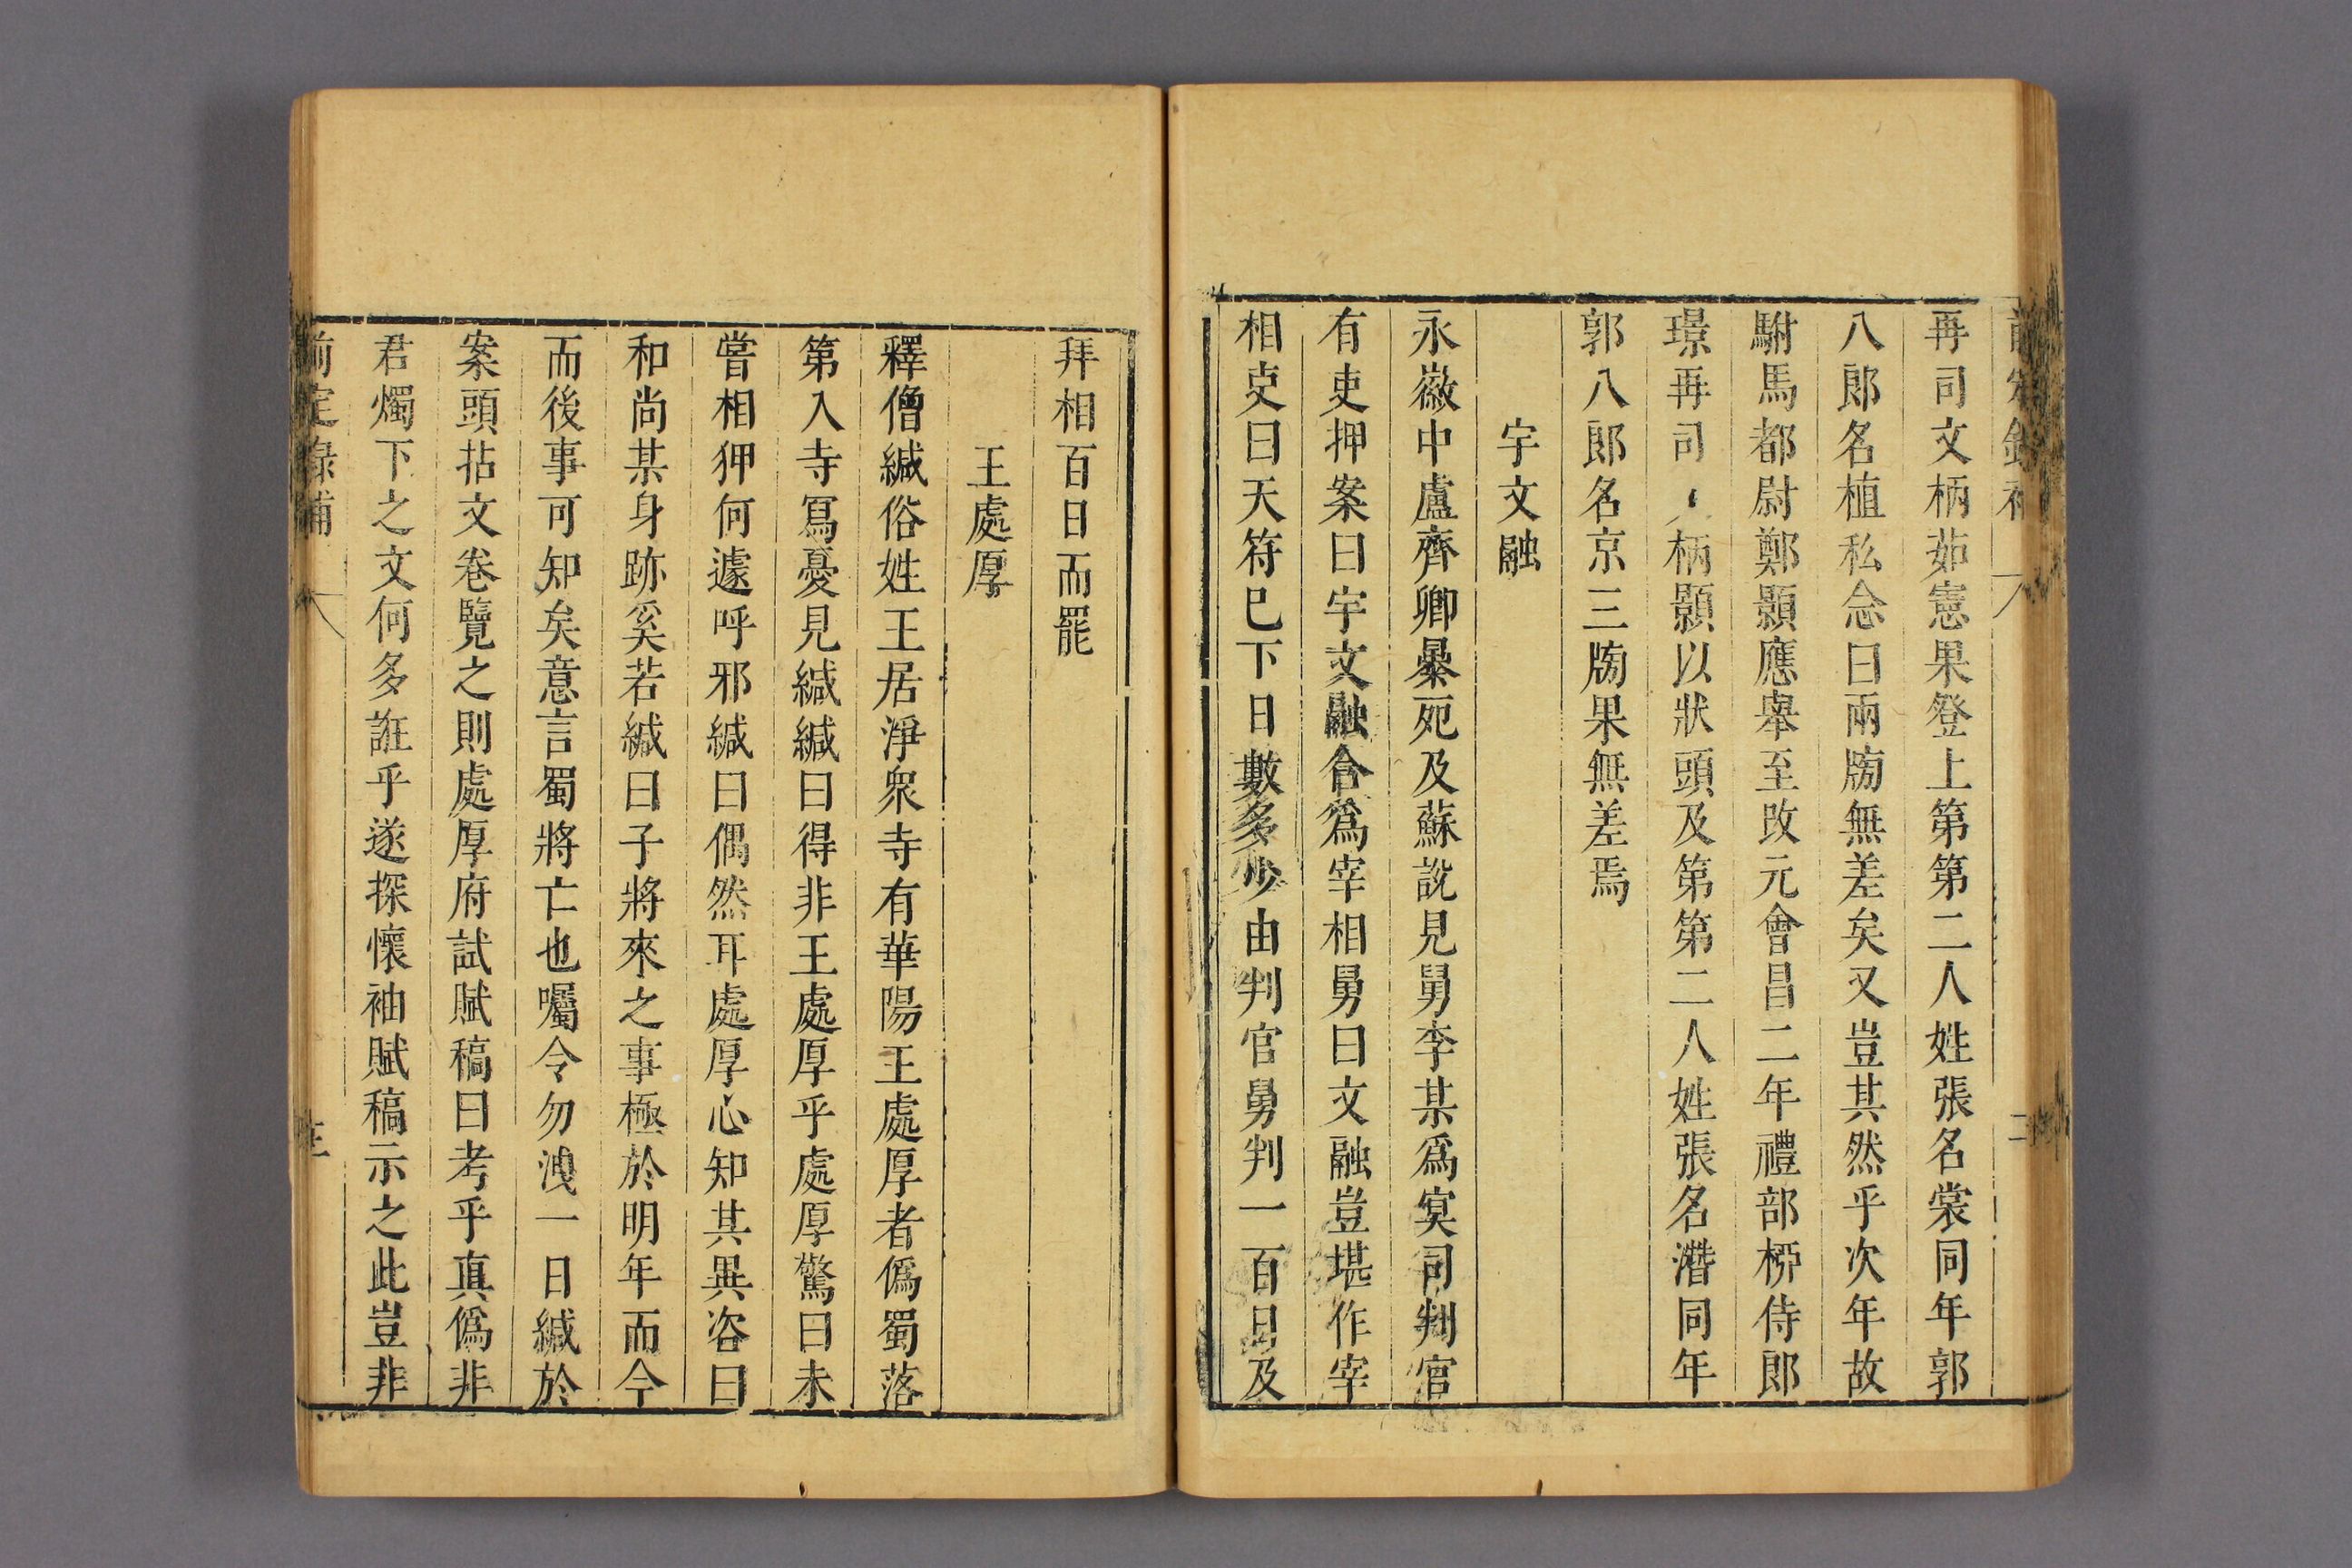 再司文柄茹憲果登上第第二人姓張名裳同年郭
八郎名植私念曰兩牓無差矣又豈其然乎次年故
駙馬都尉鄭顥應舉至改元會昌二年禮部桺侍郎
璟再司柄顥以狀頭及第第二人姓張名潛同年
郭八郎名京三牓果無差焉
宇文融
永徽中盧齊卿暴死及蘇說見舅李某爲㝠司判官
有吏押案曰宇文融合爲宰相舅曰文融豈堪作宰
相吏曰天符已下日數多少由判官舅判一百日及
拜相百日而罷
王處厚
釋僧緘俗姓王居淨衆寺有華陽王處厚者僞蜀落
第入寺寫憂見緘緘曰得非王處厚乎處厚驚曰未
嘗相狎何遽呼邪緘曰偶然耳處厚心知其異咨曰
和尚某身跡奚若緘曰子將來之事極於明年而今
而後事可知矣意言蜀將亡也囑令勿洩一日緘於
案頭拈文卷覽之則處厚府試賦稿曰考乎真僞非
君燭下之文何多誑乎遂探懷袖賦稿示之此豈非
前定錄補